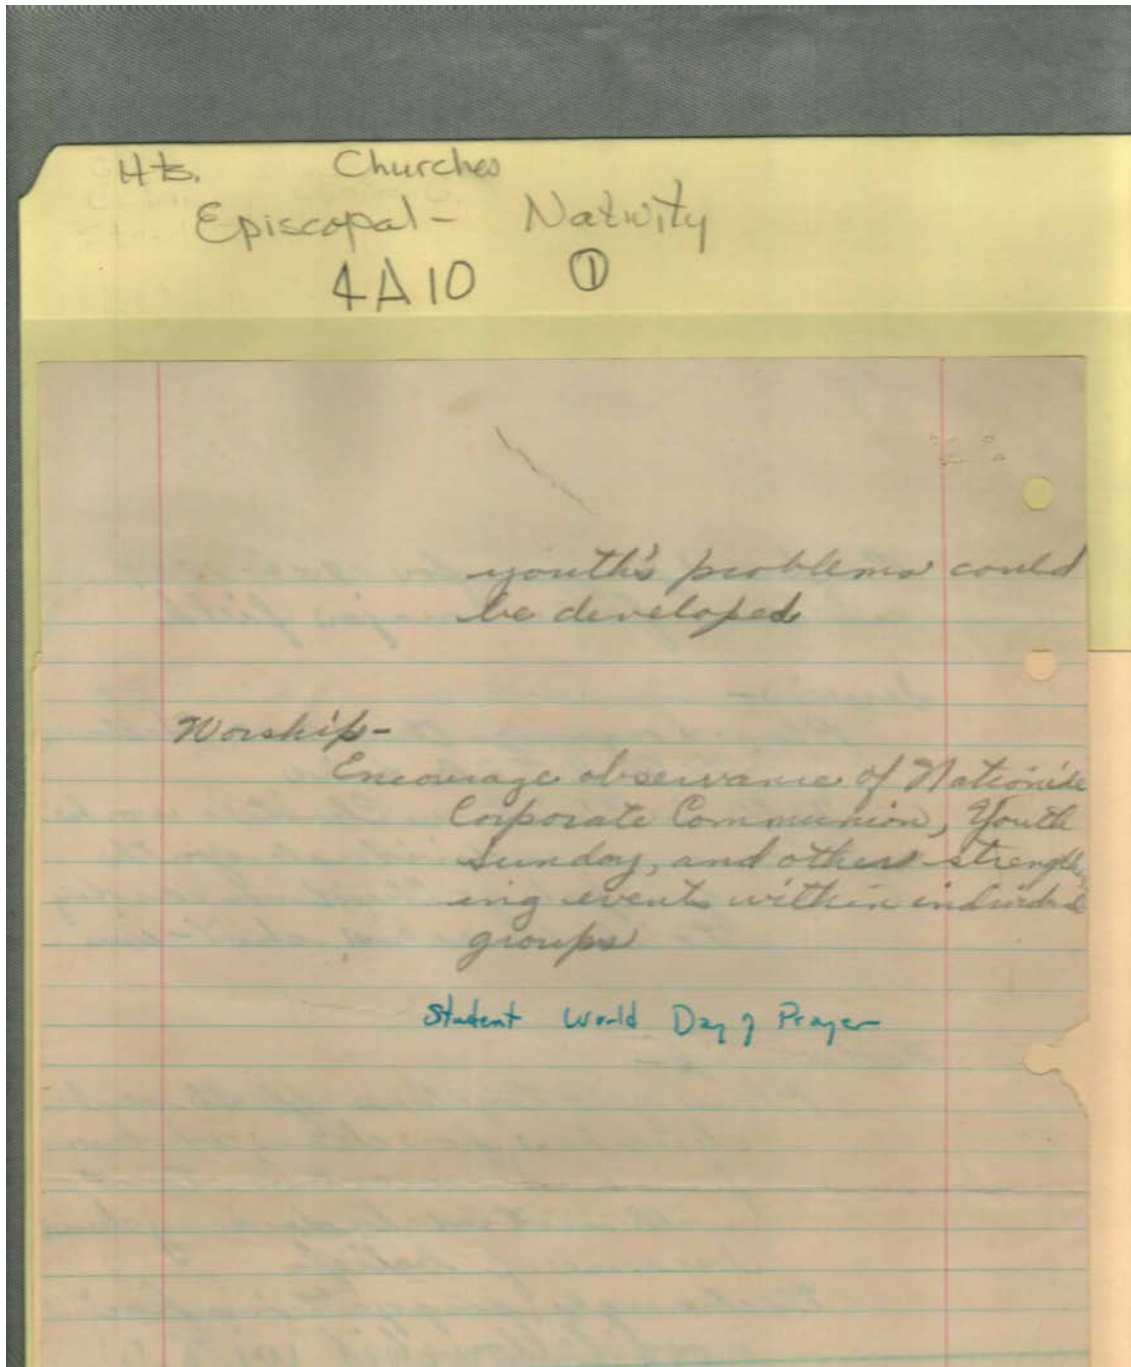 Hts. Churches
Episcopal - Nativity
4A10 ①
youth's problems could
be developed
Worship-
Encourage observance of
Corporate Communion, Youth
Sunday, and other strength
ing events within
groups
Student World Day of Prayer